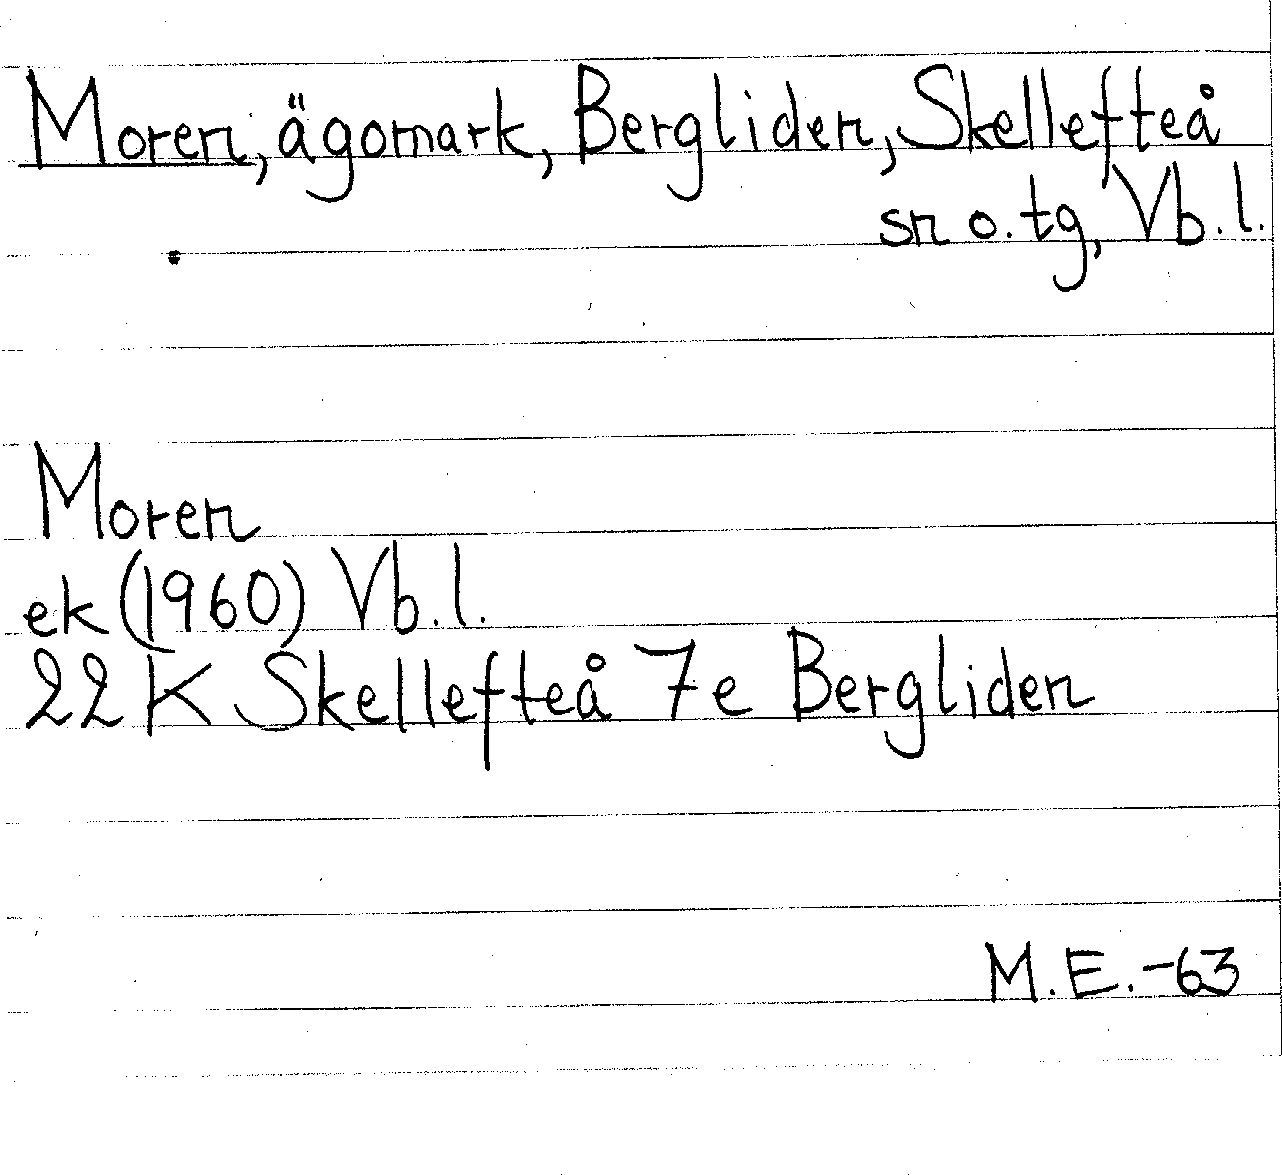 Moren, ägomark, Bergliden, Skellefteå
sn o. tg, Vb. l.
Moren
ek (1960) Vb. l.
22 K Skellefteå 7e Bergliden
M. E. -63